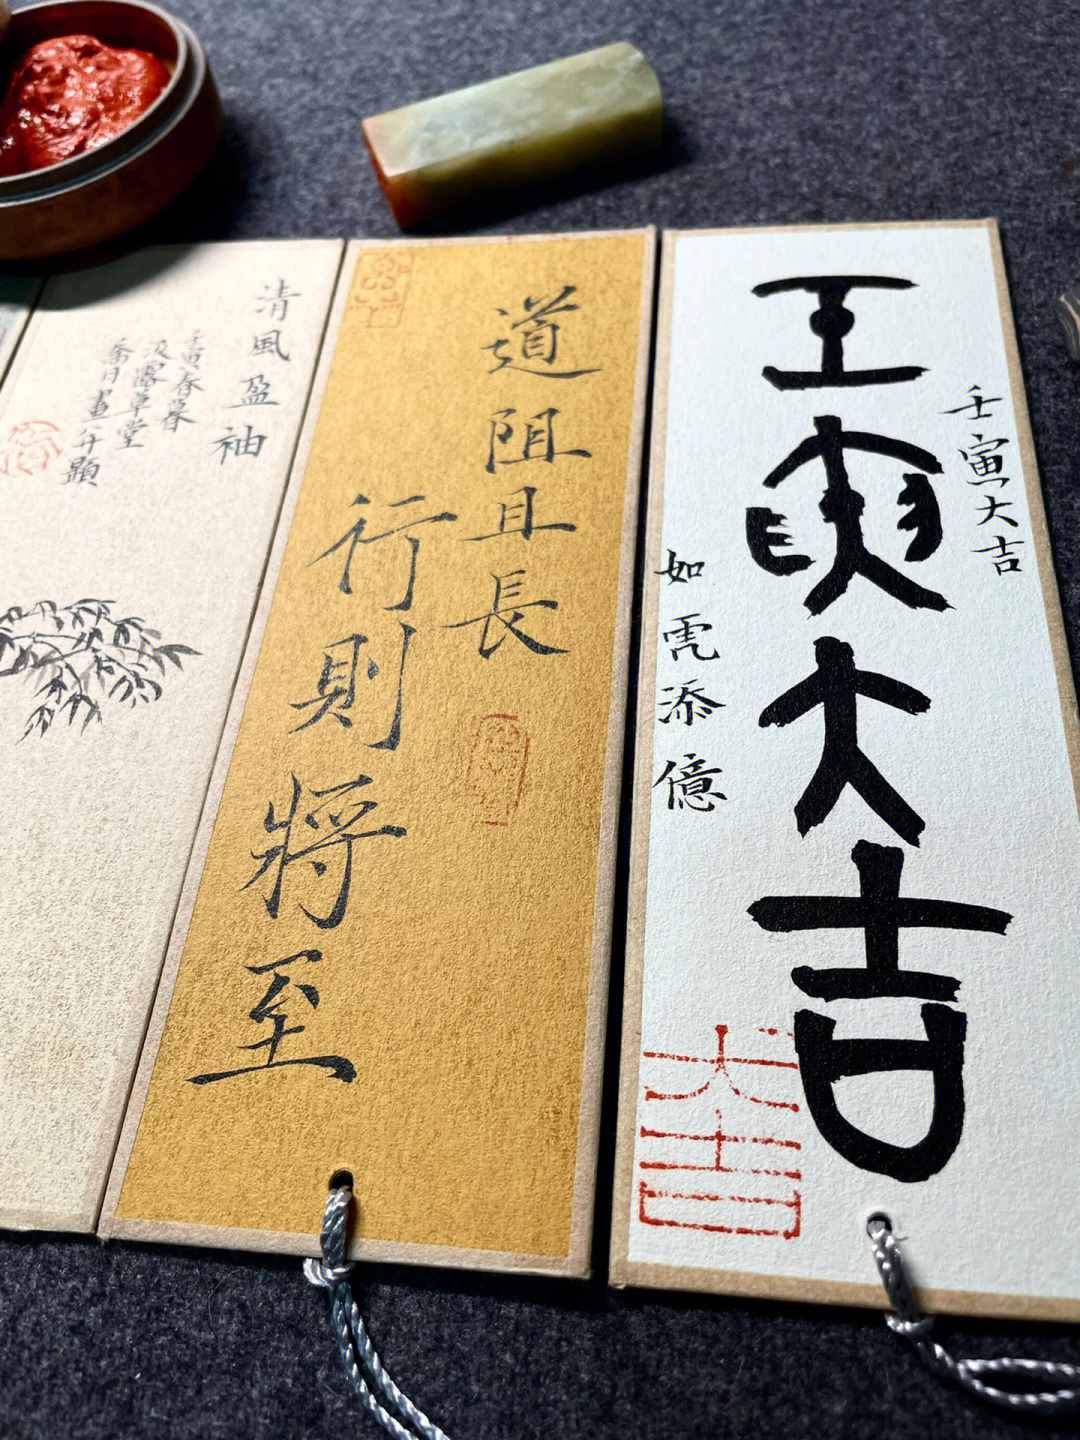 壬寅大吉
壬寅大吉
如虎添億
大吉
道阻且長
行則將至
清風盈袖
壬寅春暮
露草堂
畫并題